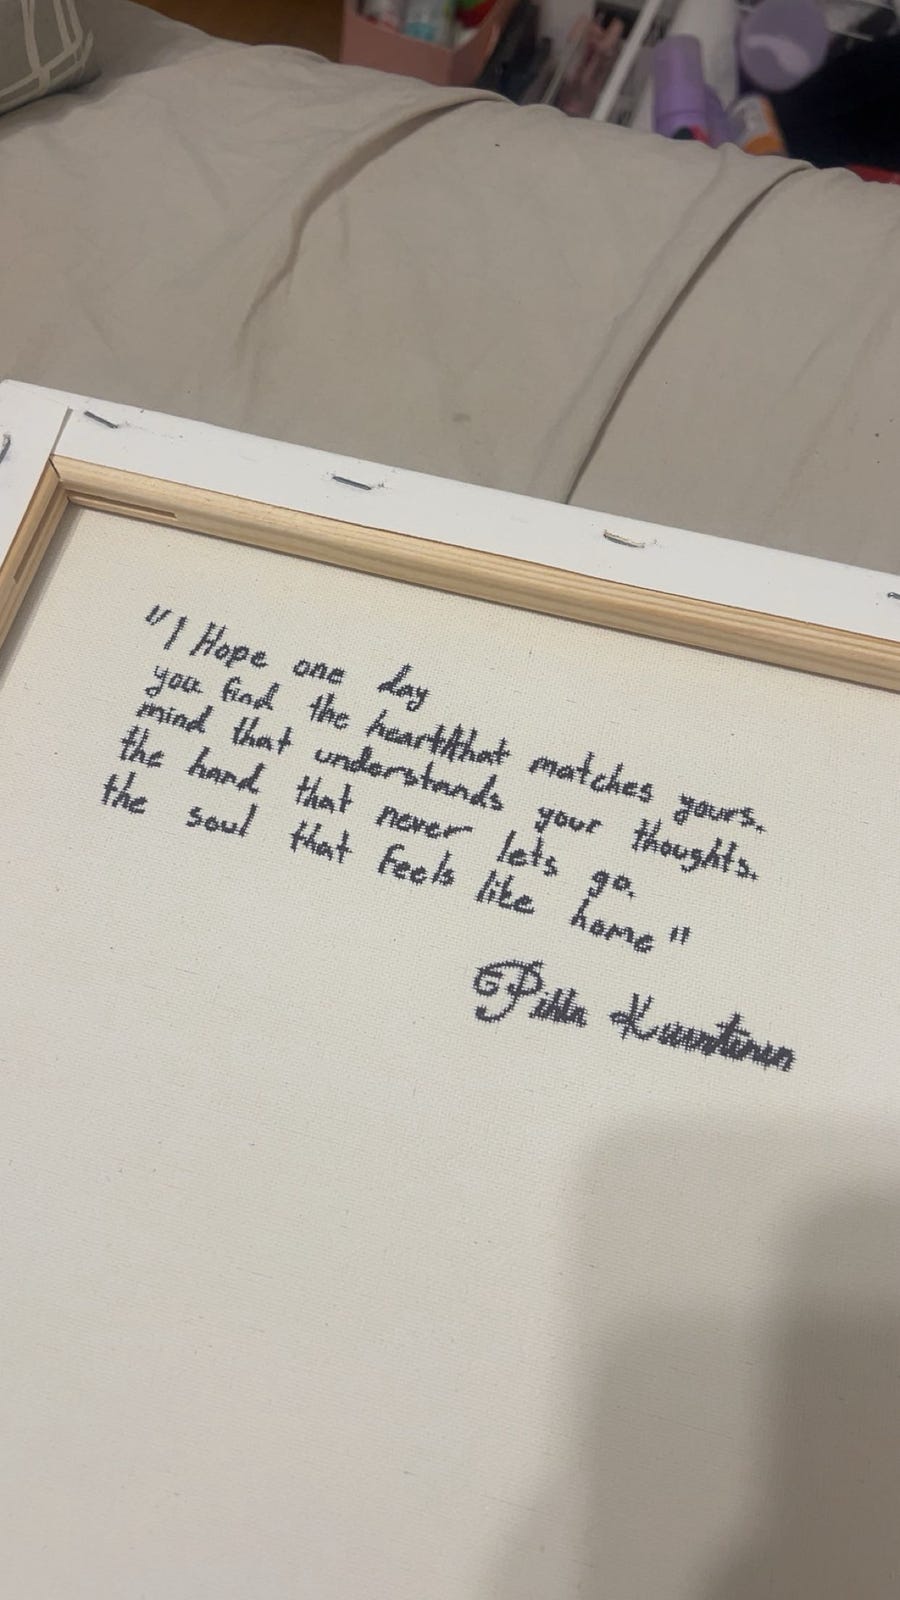 "I Hope one day
you find the heart that matches yours.
mind that understands your thoughts.
the hand that never lets go.
the soul that feels like home"
Pihla